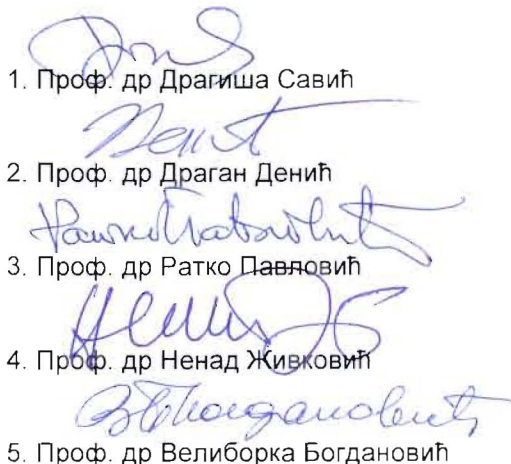 1. Проф. др Драгиша Савић
2. Проф. др Драган Денић
3. Проф. др Ратко Павловић
4. Проф. др Ненад Живковић
5. Проф. др Велиборка Богдановић